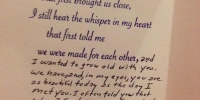 first brought us close,
I still hear the whisper in my heart
that first told me
we were made for each other, and
I wanted to grow old with you.
we have, and in my eyes, you are
so beautiful today as the day I
met you. I often told you that